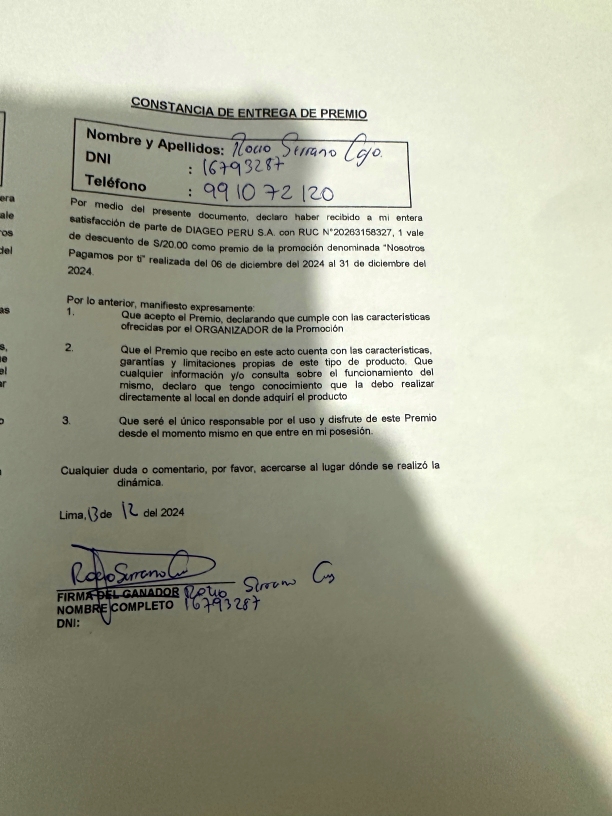 CONSTANCIA DE ENTREGA DE PREMIO
Nombre y Apellidos: Rocio Serrano
DNI : 16793287
Teléfono : 991072120
Por medio del presente documento, declaro haber recibido a mi entera
satisfacción de parte de DIAGEO PERU S.A. con RUC N°20263158327, 1 vale
de descuento de S/20.00 como premio de la promoción denominada "Nosotros
Pagamos por ti" realizada del 06 de diciembre del 2024 al 31 de diciembre del
2024.
Por lo anterior, manifiesto expresamente:
1. Que acepto el Premio, declarando que cumple con las características
ofrecidas por el ORGANIZADOR de la Promoción
2. Que el Premio que recibo en este acto cuenta con las características,
garantías y limitaciones propias de este tipo de producto. Que
cualquier información y/o consulta sobre el funcionamiento del
mismo, declaro que tengo conocimiento que la debo realizar
directamente al local en donde adquirí el producto
3. Que seré el único responsable por el uso y disfrute de este Premio
desde el momento mismo en que entre en mi posesión.
Cualquier duda o comentario, por favor, acercarse al lugar dónde se realizó la
dinámica.
Lima, 13 de 12 del 2024
Rocio Serrano
FIRMA DEL GANADOR Rocio Serrano
NOMBRE COMPLETO 16793287
DNI: